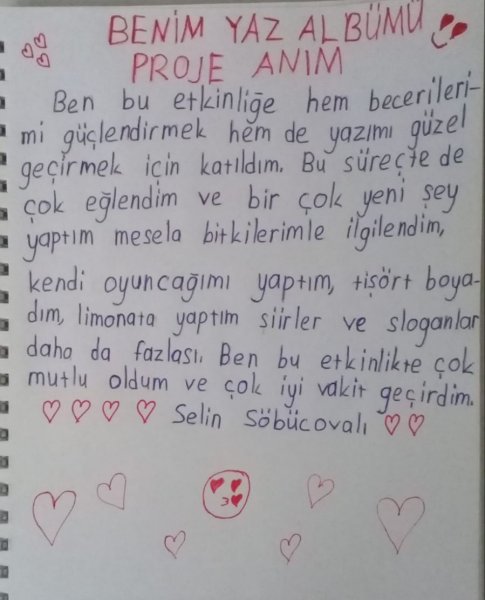 BENİM YAZ ALBÜMÜ
PROJE ANIM
Ben bu etkinliğe hem becerileri-
mi güçlendirmek hem de yazımı güzel
geçirmek için katıldım. Bu süreçte de
çok eğlendim ve bir çok yeni şey
yaptım mesela bitkilerimle ilgilendim,
kendi oyuncağımı yaptım, tişört boya-
dım, limonata yaptım şiirler ve sloganlar
daha da fazlası. Ben bu etkinlikte çok
mutlu oldum ve çok iyi vakit geçirdim.
Selin Söbücovalı